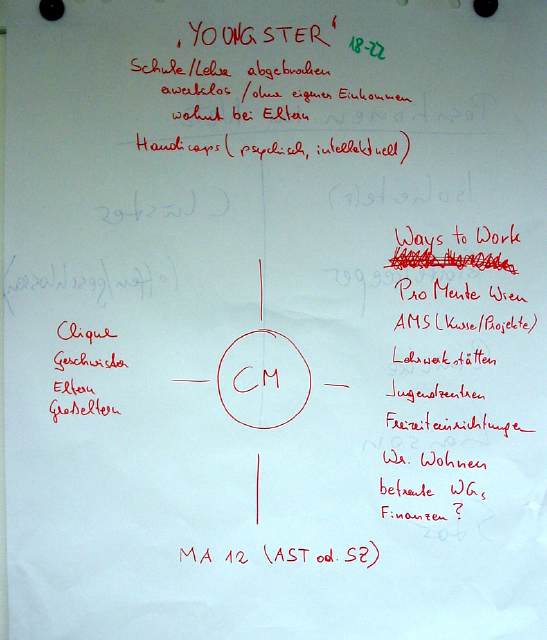 'YOUNGSTER' 18-22
Schule/Lehre abgebrochen
erwerbslos / ohne eigenes Einkommen
wohnt bei Eltern
Handicaps (psychisch, intellektuell)
Ways to Work
Pro Mente Wien
AMS (Kurse/Projekte)
Lehrwerkstätten
Jugendzentren
Freizeiteinrichtungen
Wr. Wohnen
betreute WGs
Finanzen?
Clique
Geschwister
Eltern
Großeltern
CM
MA 12 (AST od. SZ)